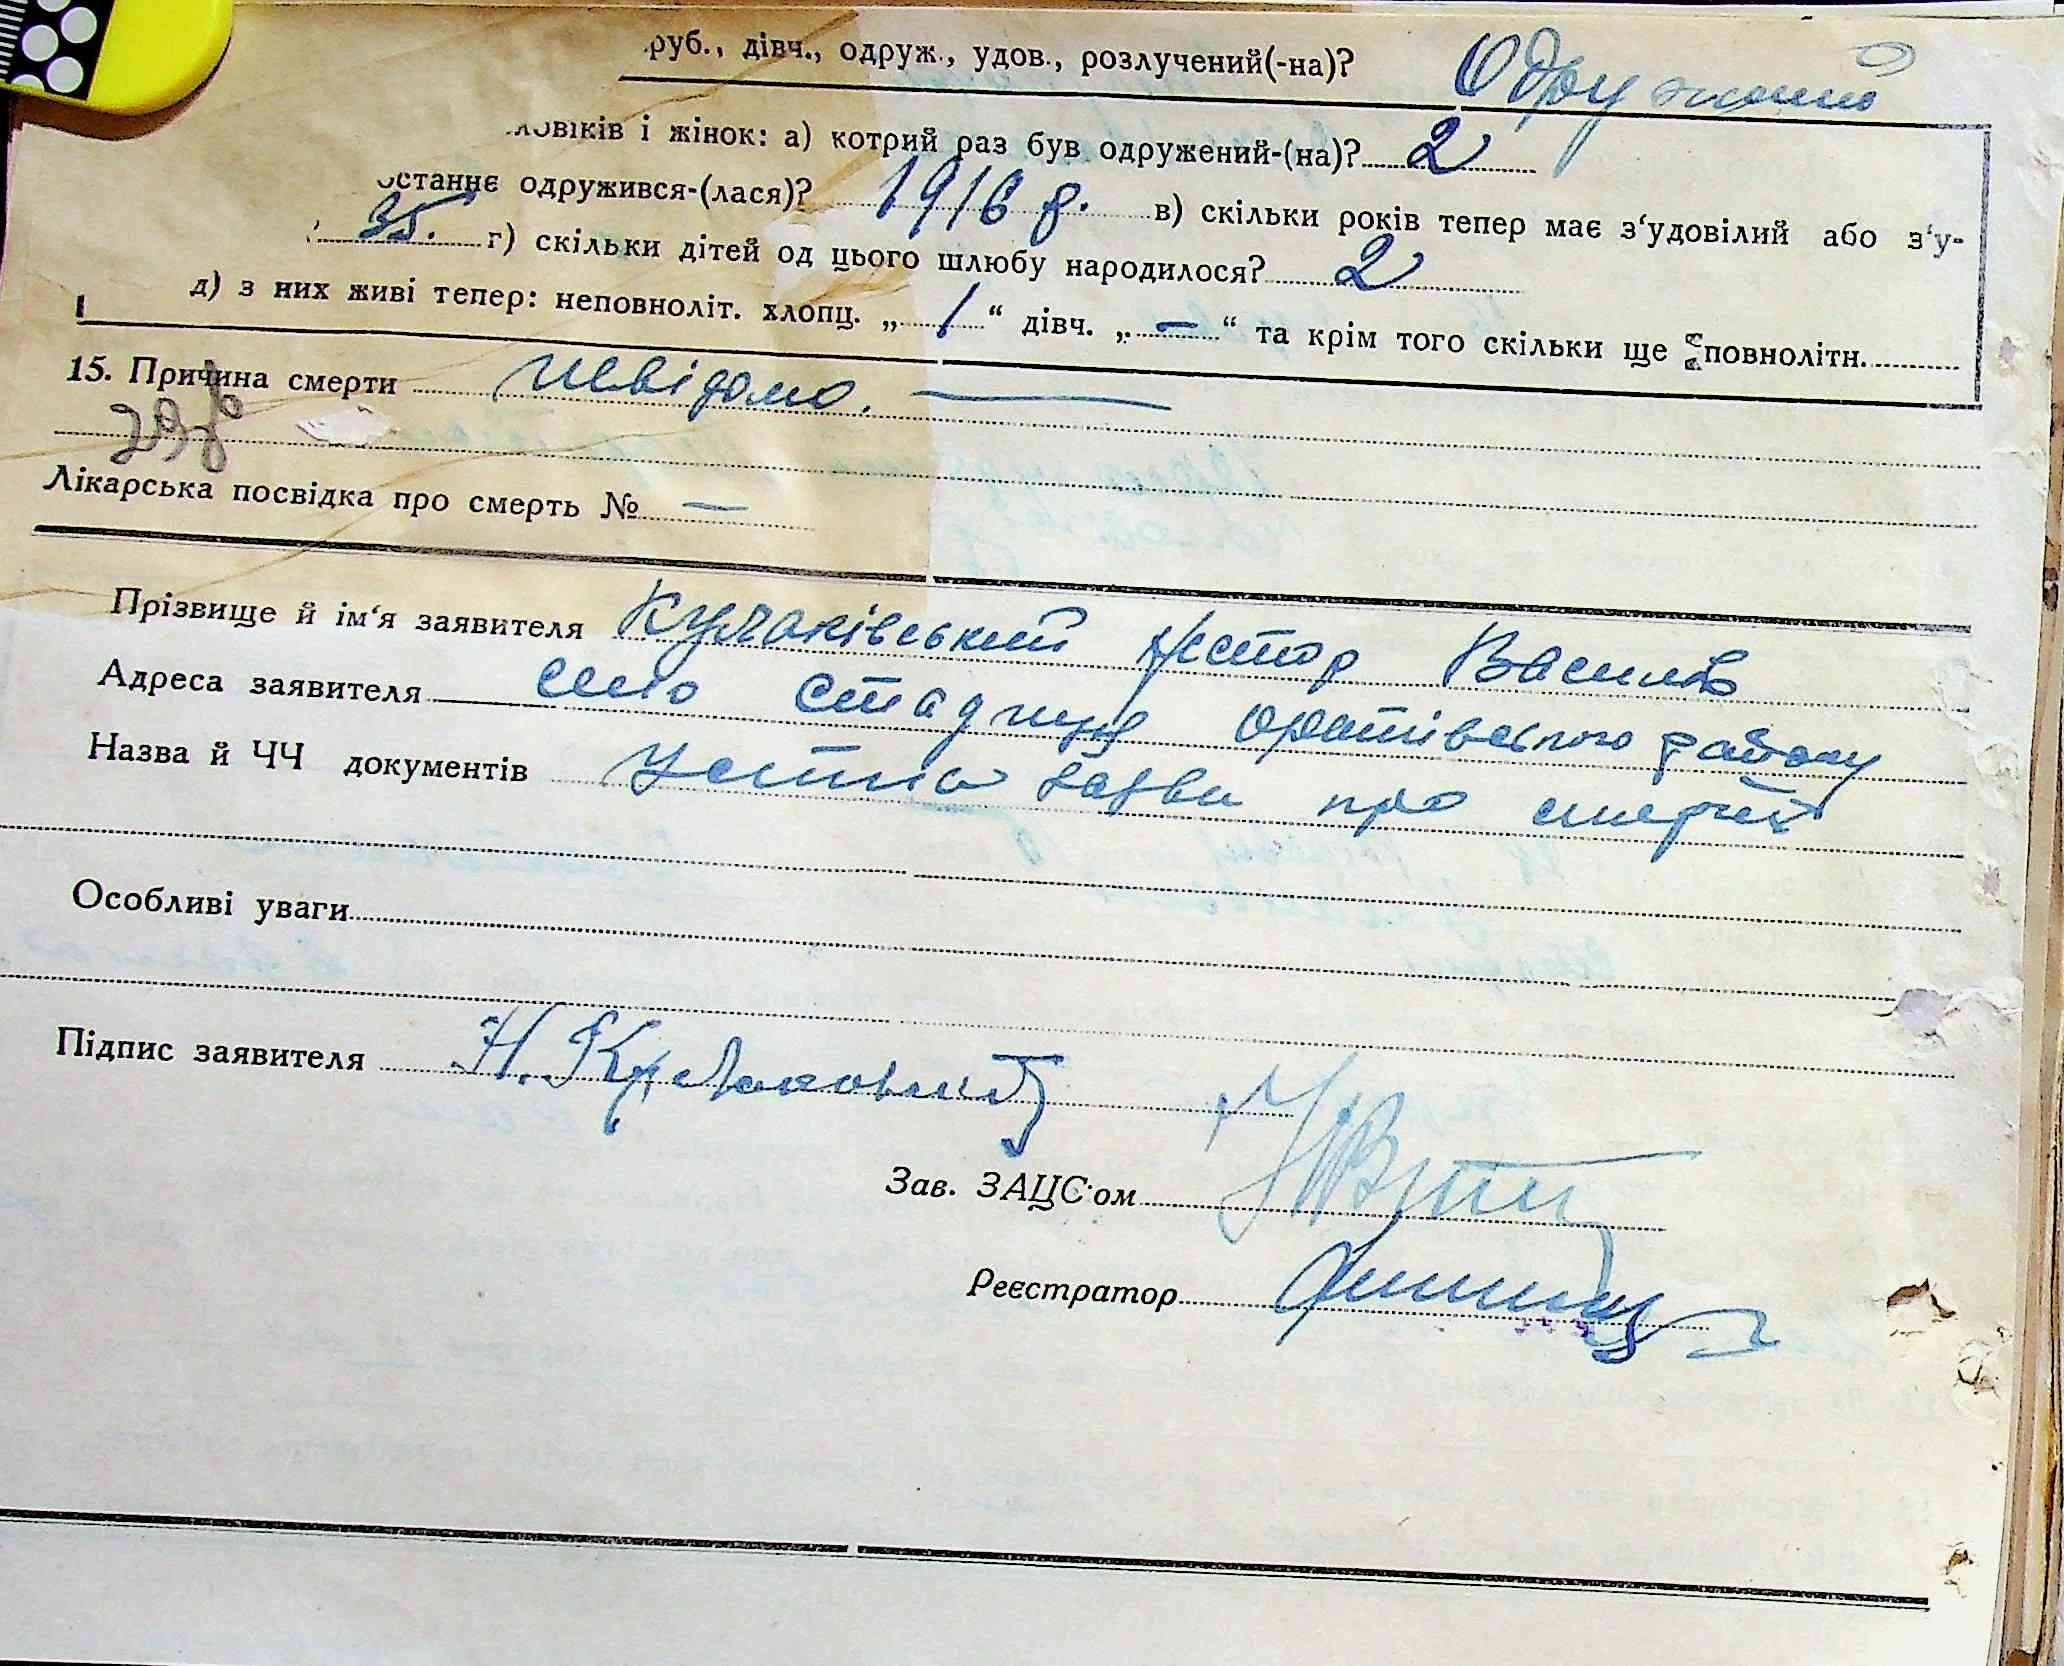 руб., дівч., одруж., удов., розлучений(-на)? Одружений
ловіків і жінок: а) котрий раз був одружений-(на)? 2
останнє одружився-(лася)? 1916 р. в) скільки років тепер має з‘удовілий або з‘у-
35. г) скільки дітей од цього шлюбу народилося? 2
д) з них живі тепер: неповноліт. хлопц. „ 1 “ дівч. „ — “ та крім того скільки ще повнолітн.
15. Причина смерти невідомо. —
Лікарська посвідка про смерть № —
Прізвище й ім‘я заявителя Кулаківський Нестор Василів
Адреса заявителя село Стадниця Оратівського району
Назва й ЧЧ документів Устна заява про смерть
Особливі уваги
Підпис заявителя Н. Кулаковский
Зав. ЗАЦС‘ом
Реєстратор